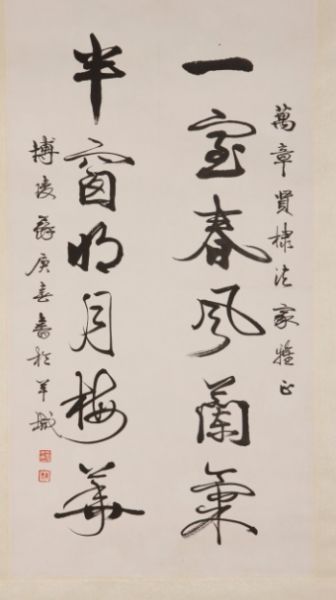 萬章賢棣法家雅正
一室春風蘭氣
半窗明月梅華
博陵蘇庚春書於羊城